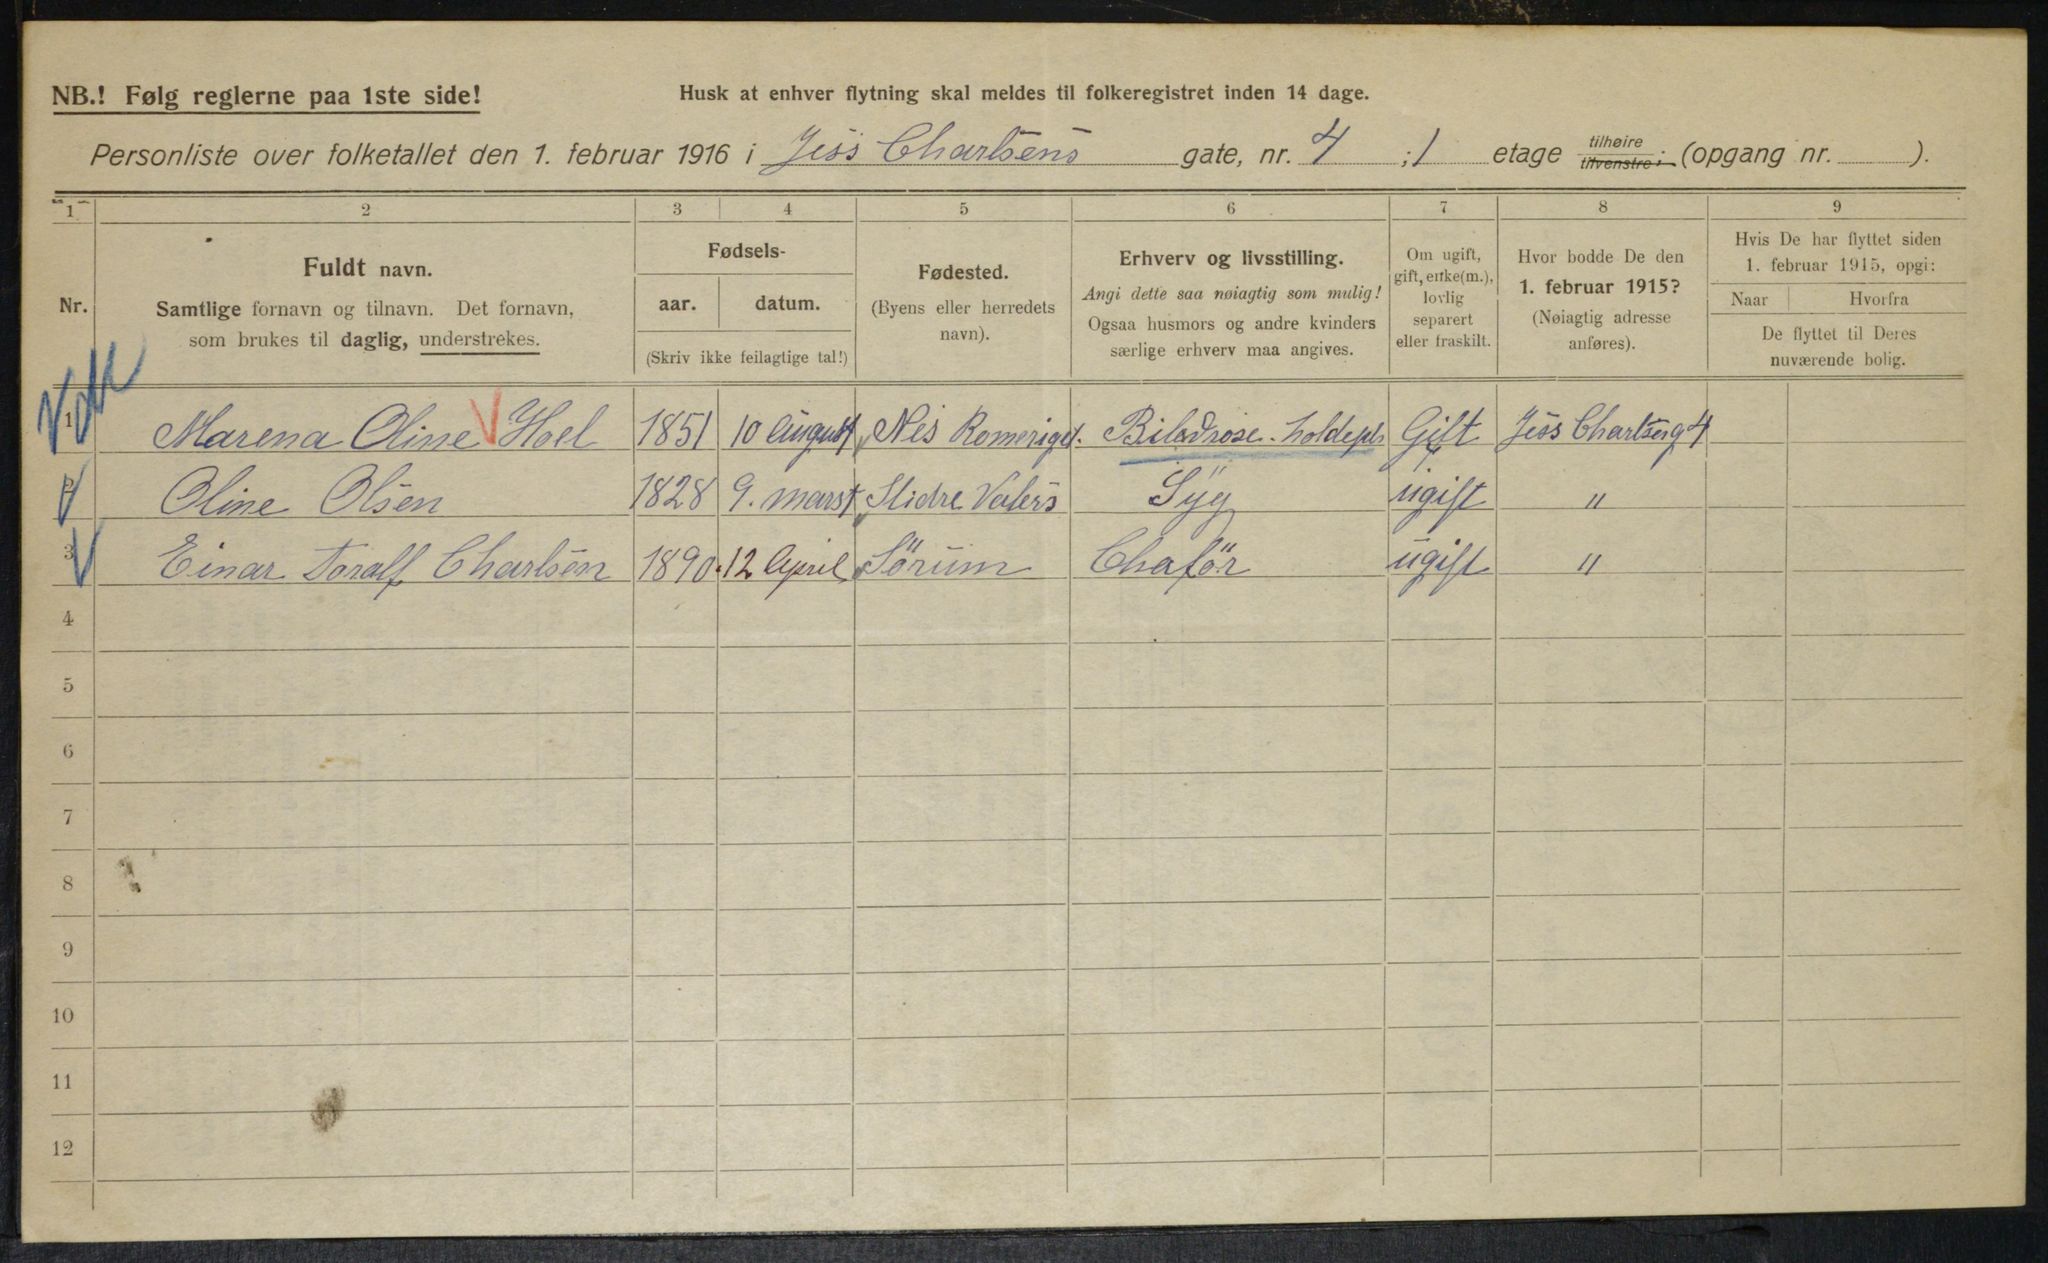 NB.! Følg reglerne paa 1ste side!
Husk at enhver flytning skal meldes til folkeregistret inden 14 dage.
Personliste over folketallet den 1. februar 1916 i Jess Charlsens gate, nr. 4 ; 1 etage tilhøire tilvenstre; (opgang nr. ).
1 2 3 4 5 6 7 8 9
Nr.
Fuldt navn.
Samtlige fornavn og tilnavn. Det fornavn,
som brukes til daglig, understrekes.
Fødsels-
aar. datum.
(Skriv ikke feilagtige tal!)
Fødested.
(Byens eller herredets
navn).
Erhverv og livsstilling.
Angi dette saa nøiagtig som mulig!
Ogsaa husmors og andre kvinders
særlige erhverv maa angives.
Om ugift,
gift, enke(m.),
lovlig
separert
eller fraskilt.
Hvor bodde De den
1. februar 1915?
(Nøiagtig adresse
anføres).
Hvis De har flyttet siden
1. februar 1915, opgi:
Naar Hvorfra
De flyttet til Deres
nuværende bolig.
1 Marena Oline Hoel 1851 10 August Nes Romerige. Gift Jess Charlseng 4
2 Oline Olsen 1828 9. marst Slidre Valers Syg ugift "
3 Einar Toralf Charlsen 1890 12 April Sørum Chafør ugift "
4
5
6
7
8
9
10
11
12